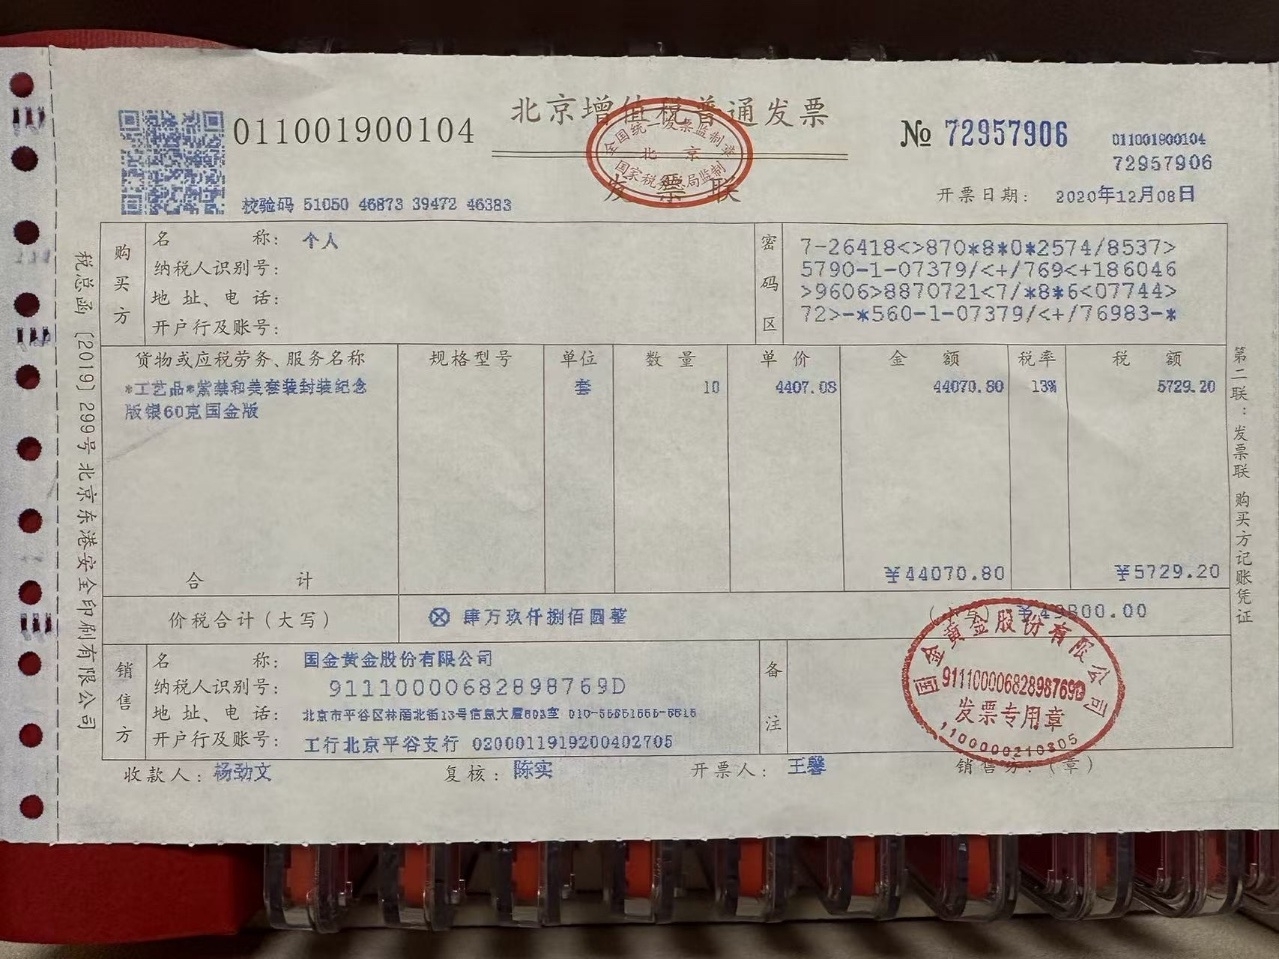 北京增值税普通发票
发票联
全国统一发票监制章
北京
国家税务总局监制
011001900104
№ 72957906
011001900104
72957906
校验码 51050 46873 39472 46383
开票日期: 2020年12月08日
税总函〔2019〕299号北京东港安全印刷有限公司
购买方
名称: 个人
纳税人识别号:
地址、电话:
开户行及账号:
密码区
7-26418<>870*8*0*2574/8537>
5790-1-07379/<+/769<+186046
>9606>8870721<7/*8*6<07744>
72>-*560-1-07379/<+/76983-*
货物或应税劳务、服务名称 规格型号 单位 数量 单价 金额 税率 税额
*工艺品*紫禁和美套装封装纪念 套 10 4407.08 44070.80 13% 5729.20
版银60克国金版
合计 ¥44070.80 ¥5729.20
价税合计(大写) ⊗ 肆万玖仟捌佰圆整 (小写) ¥49800.00
第二联:发票联 购买方记账凭证
销售方
名称: 国金黄金股份有限公司
纳税人识别号: 91110000682898769D
地址、电话: 北京市平谷区林荫北街13号信息大厦802室 010-
开户行及账号: 工行北京平谷支行 0200011919200402705
备注
国金黄金股份有限公司
91110000682898769D
发票专用章
收款人: 杨劲文 复核: 陈实 开票人: 王馨 销售方:(章)